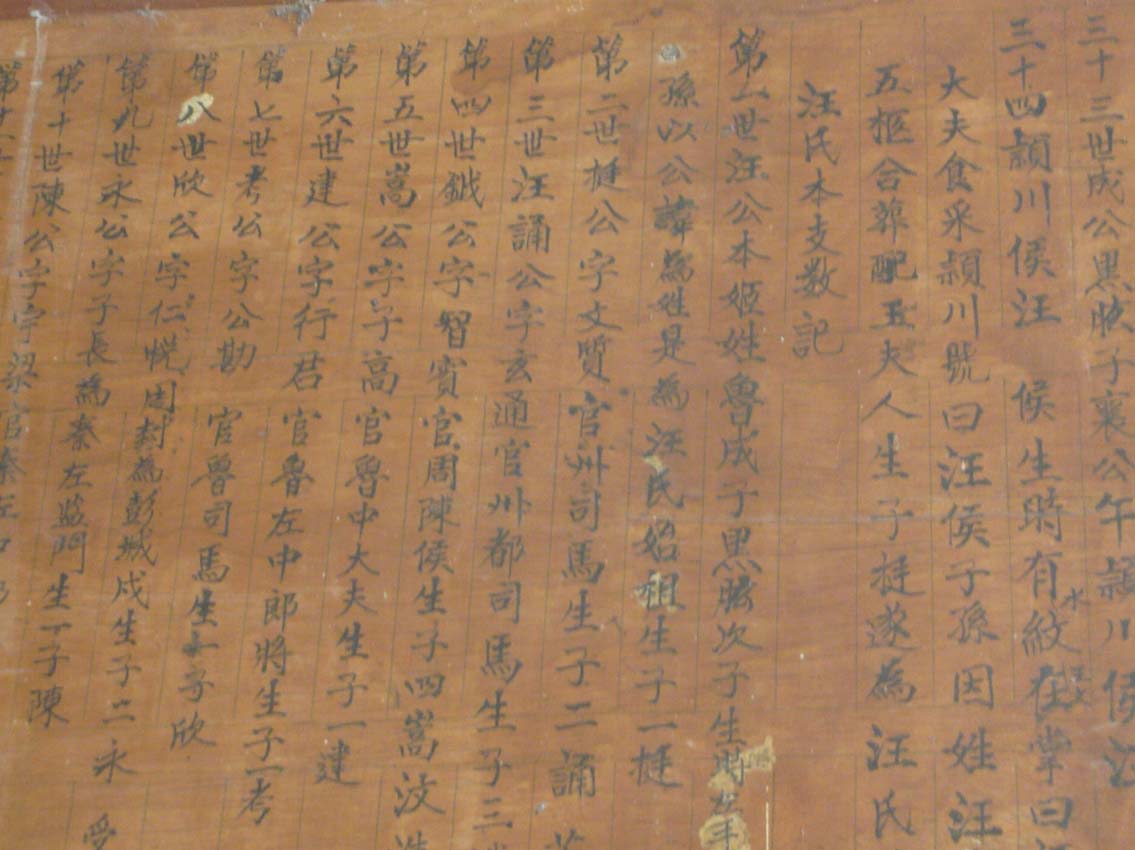 三十三世成公黑肱子襄公午潁川侯汪
三十四潁川侯汪 侯生時有紋在掌曰
大夫食采潁川號曰汪侯子孫因姓汪
五柩合葬配五夫人生子挺遂為汪氏
汪氏本支数記
第一世汪公本姬姓魯成子黑肱次子生時
孫以公諱為姓是為汪氏始祖生子一挺
第二世挺公字文質官州司馬生子二誦
第三世汪誦公字玄通官州都司馬生子三
第四世鉞公字智賓官周陳侯生子四嵩汶
第五世嵩公字子高官魯中大夫生子一建
第六世建公字行君官魯左中郎將生子一考
第七世考公字公勘官魯司馬生子欣
第八世欣公字仁悦周封為彭城戍生子二永
第九世永公字子長為秦左監門生一子陳
第十世陳公字字梁官秦左